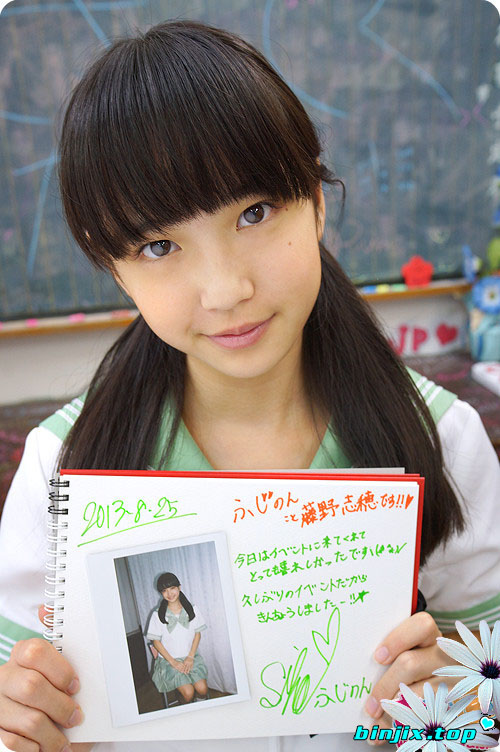 2013.8.25
ふじのん
こと藤野志穂です!!♥
今日はイベントに来てくれて
とっても嬉しかったです\(^o^)/
久しぶりのイベントだから
きんちょうしました…!!
ふじのん
JP♥
binjix.top